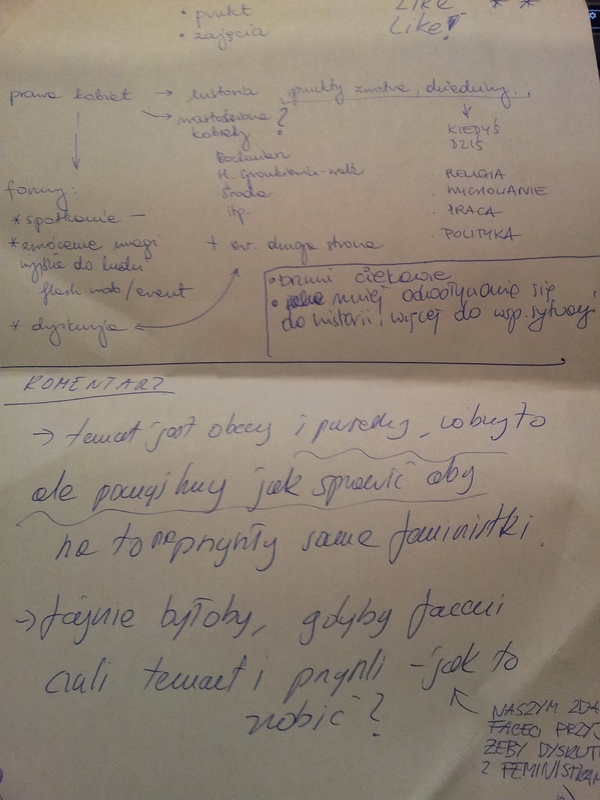 • punkt
• zajęcia
Like * *
Like!
prawa kobiet → historia, punkty zwrotne, dziedziny..
wartościowe ?
kobiety
Bochniarz
H. Gronkiewicz-Waltz
Środa
itp.
KIEDYŚ
DZIŚ
• RELIGIA
• WYCHOWANIE
• PRACA
• POLITYKA
formy:
* spotkanie —
* zwrócenie uwagi
wyjście do ludzi
flash mob/event
* dyskusja
+ ew. druga strona
• brzmi ciekawie
• mniej odwoływania się
do historii, więcej do wsp. sytuacji
KOMENTARZ
→ temat jest obecny i , róbmy to
ale pomyślmy jak sprawić aby
na to nie przyszły same feministki.
→ fajnie byłoby, gdyby faceci
czuli temat i przyszli – jak to
zrobić?
NASZYM ZDA
FACECI PRZYJ
ŻEBY DYSKUT
Z FEMINISTKAM